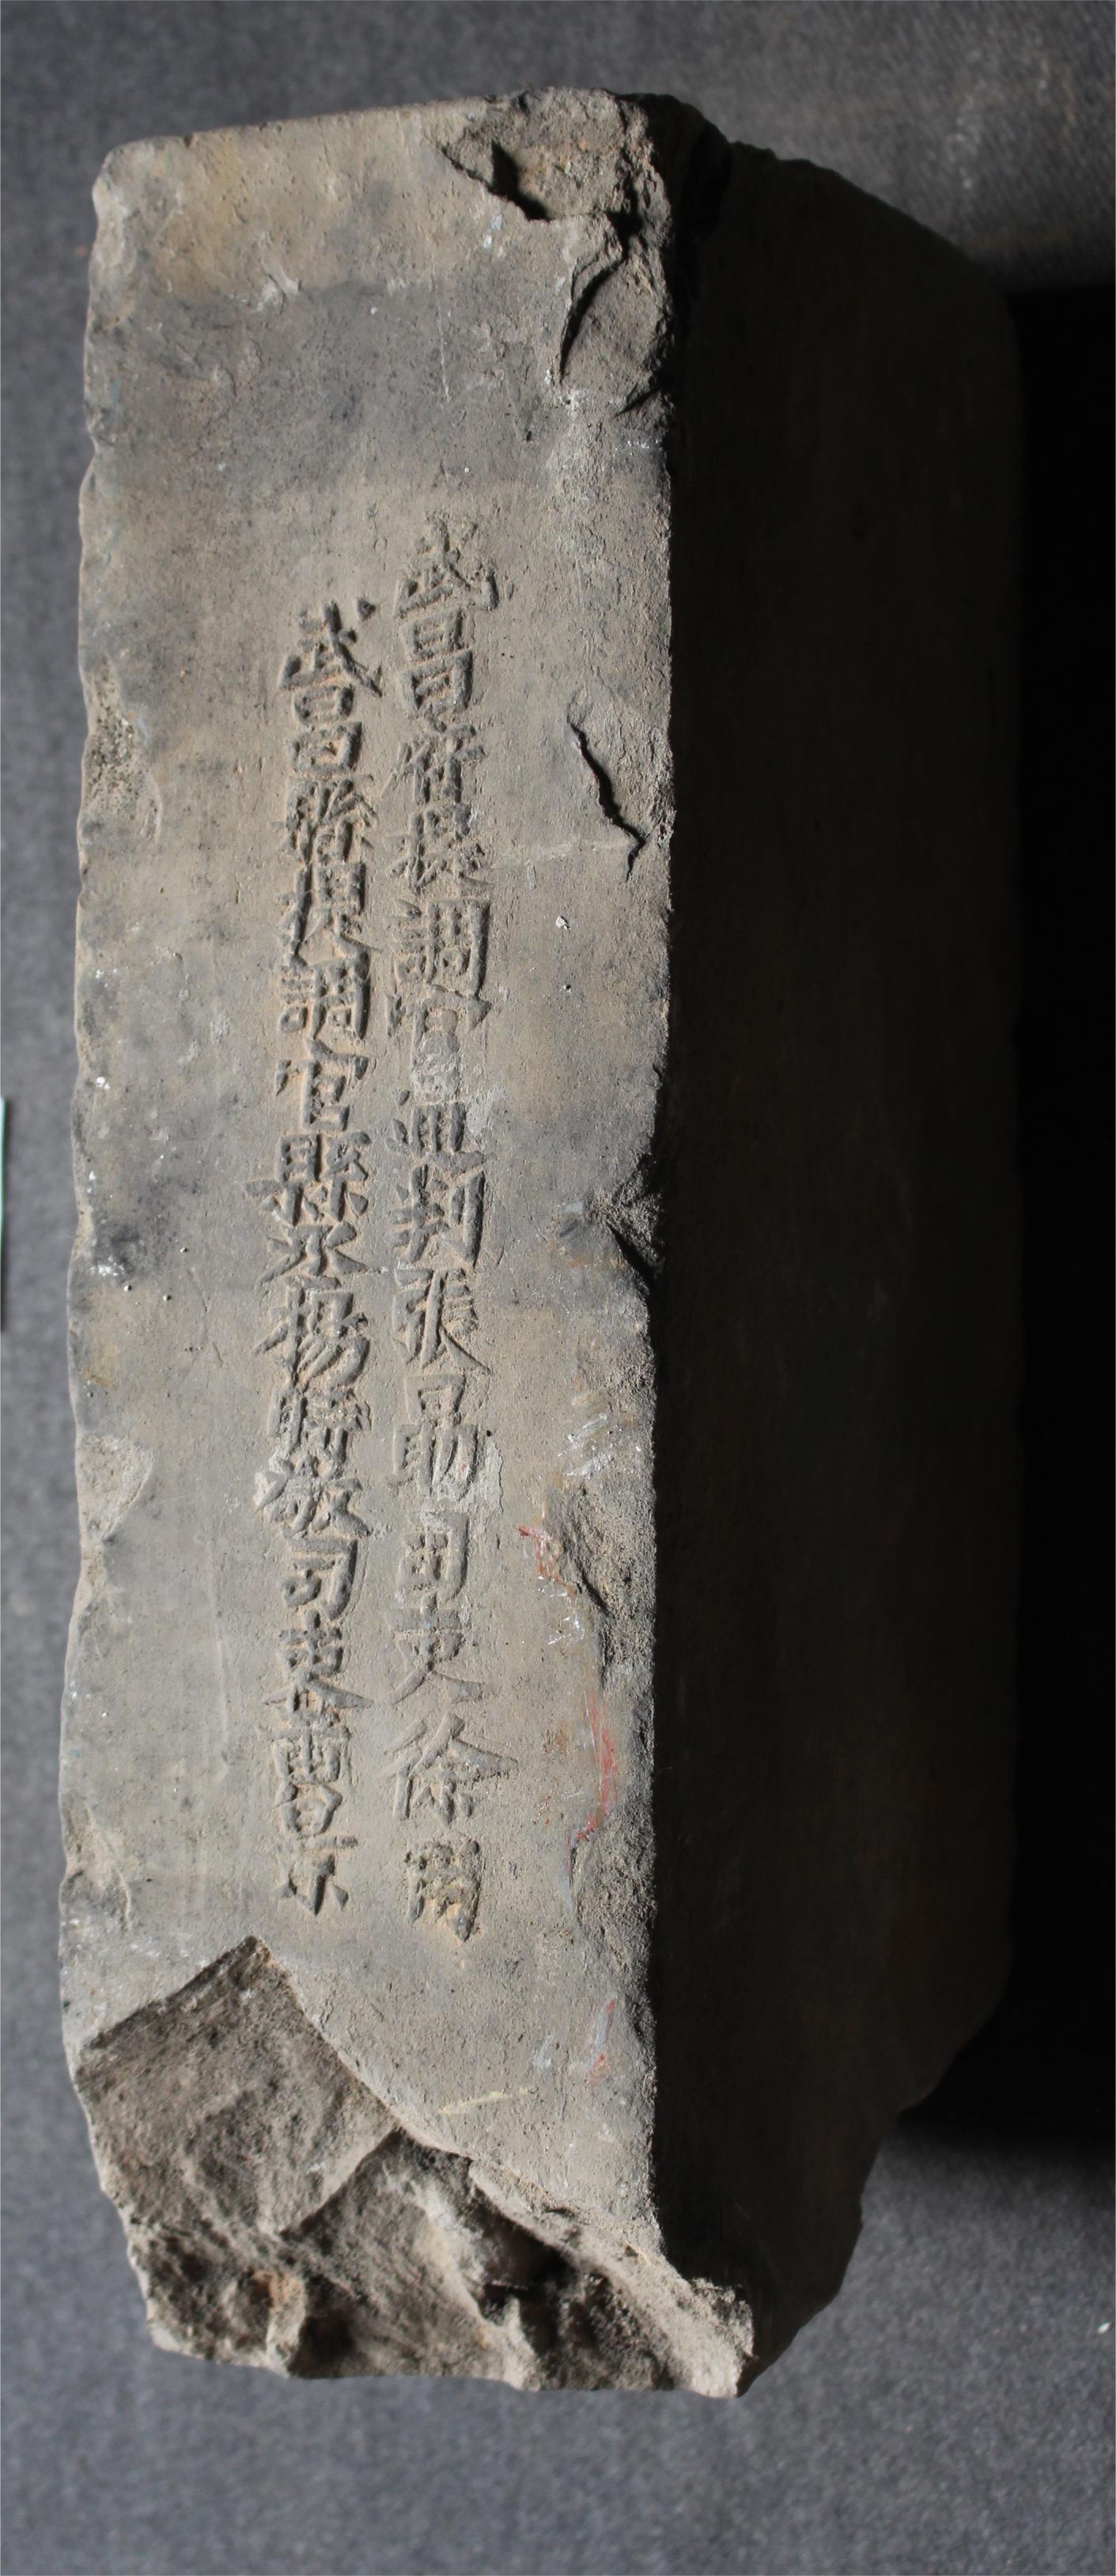 武昌府提調官通判張勗司吏徐用
武昌縣提調官縣丞楊時敬司吏曹泉